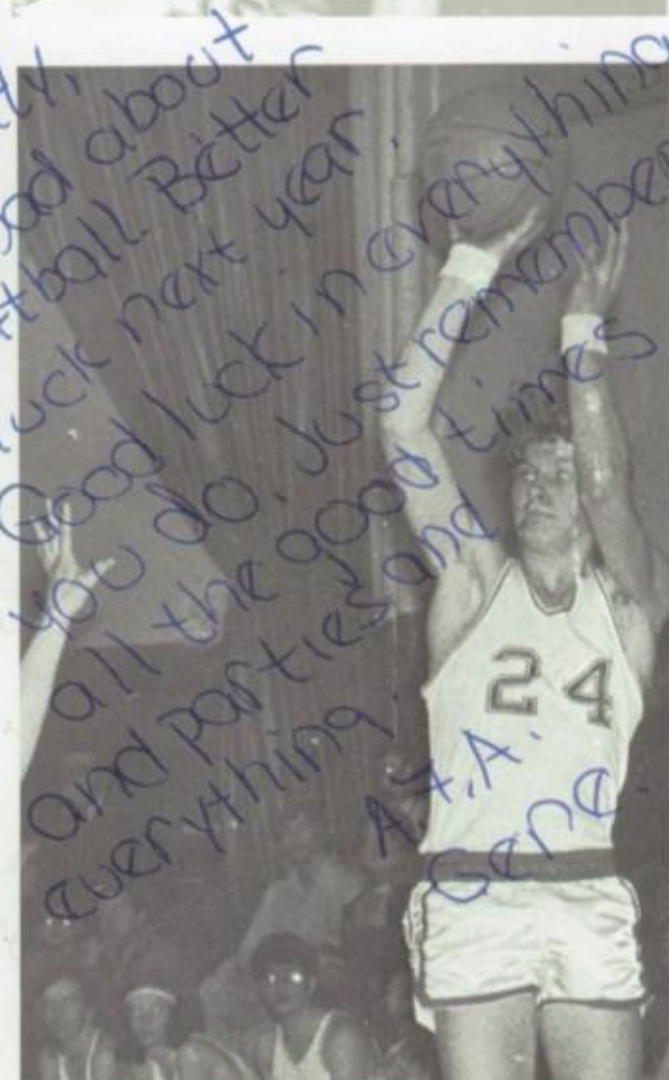 about
Better
luck next year.
Good luck in everything
you do. Just remember
all the good times
and parties and
everything.
A.F.A.
Gene
24